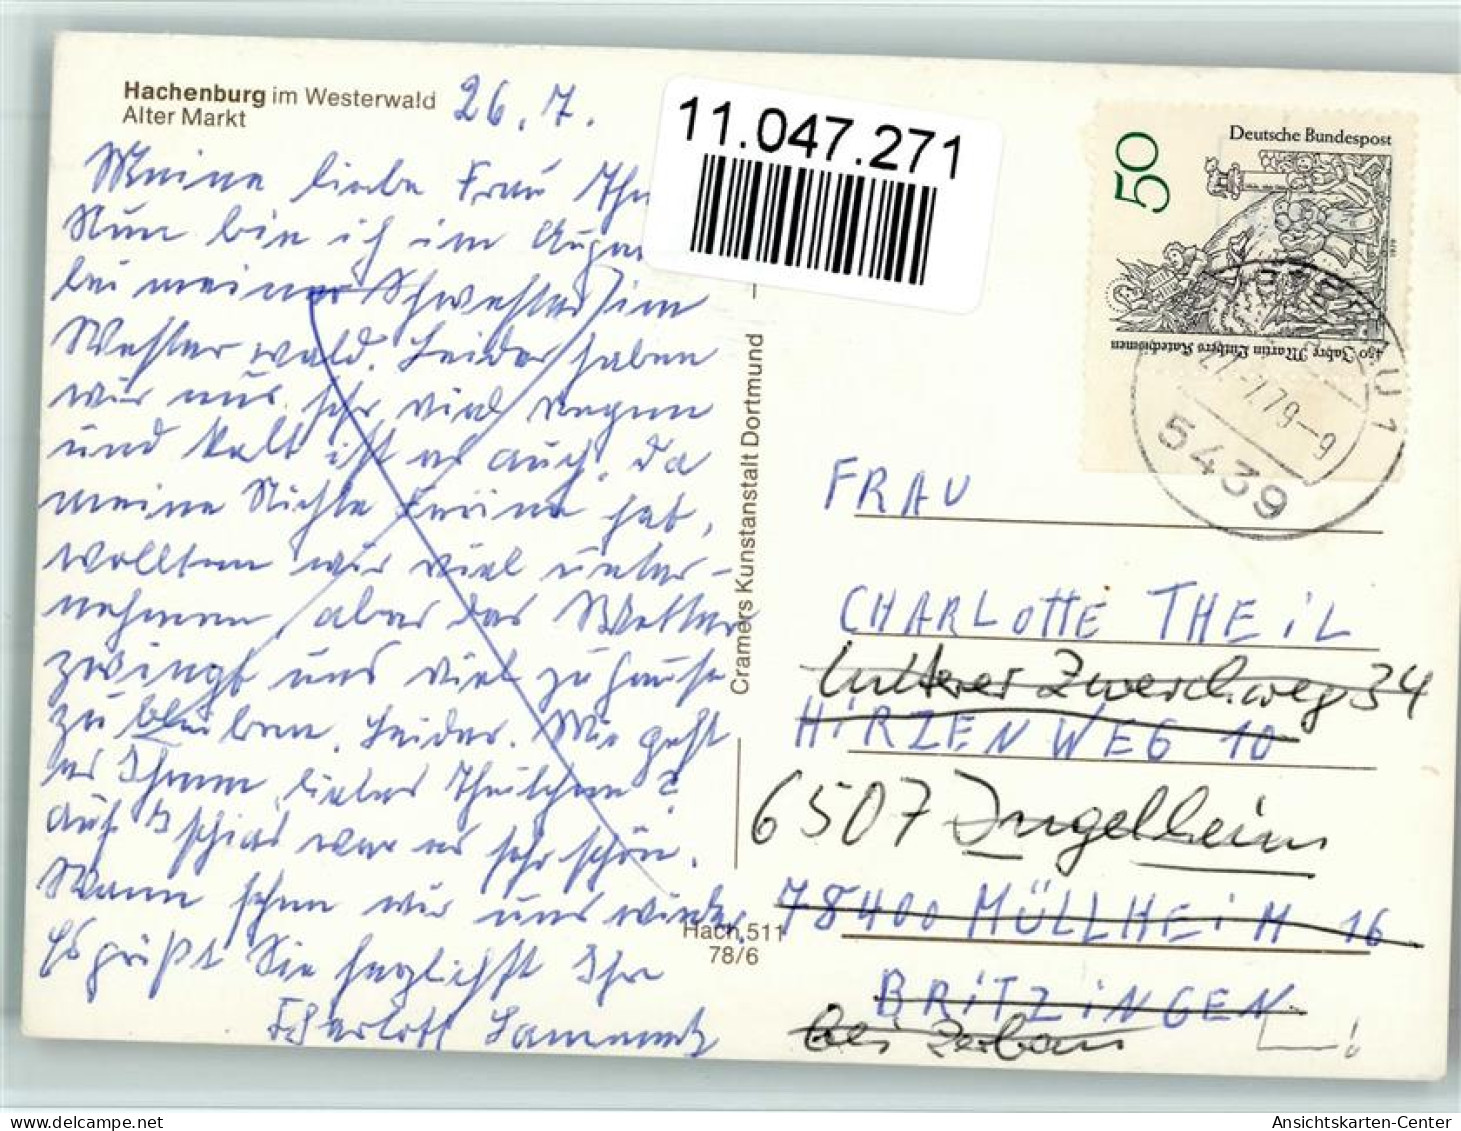 Hachenburg im Westerwald
Alter Markt
26. 7.
Meine liebe Frau
Nun bin ich im
bei meiner Schwester im
Westerwald. Leider haben
wir uns sehr viel Regen
und kalt ist es auch. Da
meine Nichte Ferien hat,
wollten wir viel unter-
nehmen, aber das Wetter
zwingt uns viel zu hause
zu bleiben. Leider. Wie geht
es Ihnen, liebes Theilchen?
Auf war es sehr schön.
Wann sehen wir uns wieder.
Es grüßt Sie herzlichst Ihre
11.047.271
Deutsche Bundespost
50
450 Jahre Martin Luthers Katechismen
1979
27.-7.79-9
5439
Cramers Kunstanstalt Dortmund
Hach 511
78/6
FRAU
CHARLOTTE THEIL
34
HIRZENWEG 10
6507 Ingelheim
78400 MÜLLHEIM 16
BRITZINGEN
bei
Ansichtskarten-Center
www.delcampe.net